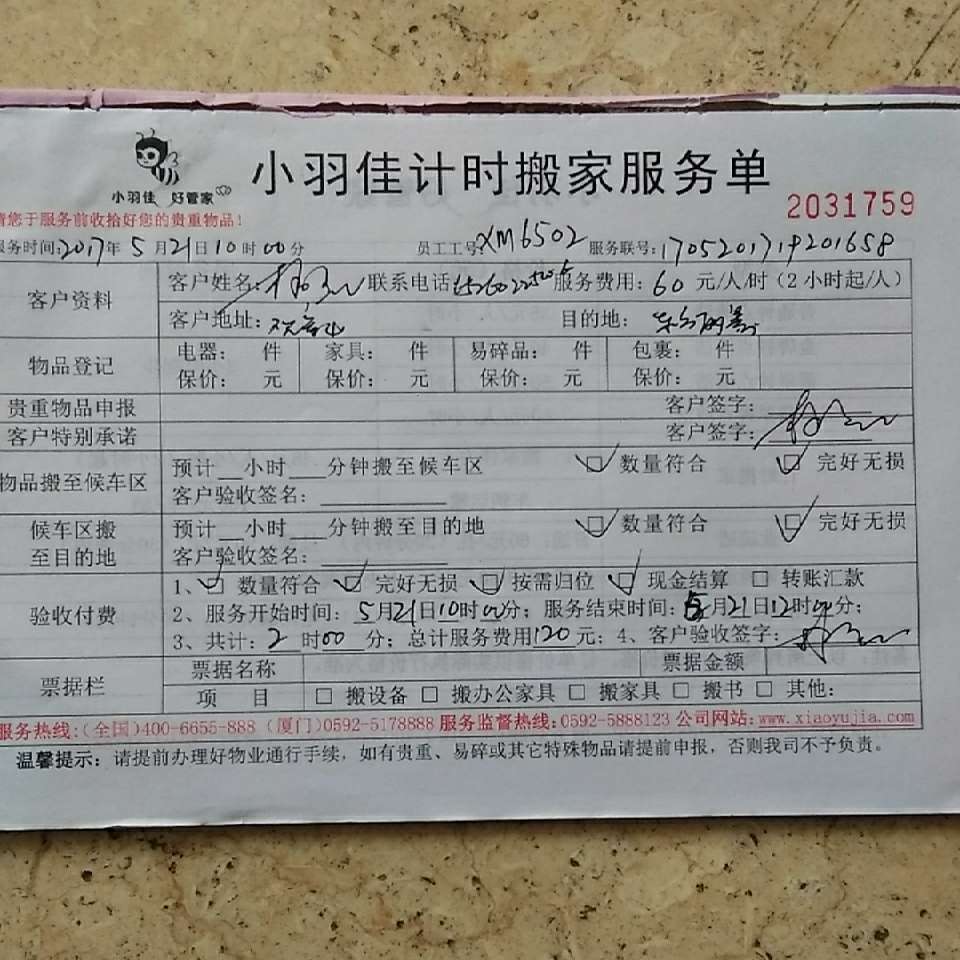 小羽佳 好管家
小羽佳计时搬家服务单
2031759
请您于服务前收拾好您的贵重物品！
服务时间：2017年5月21日10时00分 员工工号：XM6502 服务联号：
客户资料
客户姓名： 联系电话： 服务费用：60元/人/时（2小时起/人）
客户地址： 目的地：
物品登记
电器： 件 家具： 件 易碎品： 件 包裹： 件
保价： 元 保价： 元 保价： 元 保价： 元
贵重物品申报 客户签字：
客户特别承诺 客户签字：
物品搬至候车区
预计__小时___分钟搬至候车区 ☑数量符合 ☑完好无损
客户验收签名：
候车区搬至目的地
预计__小时___分钟搬至目的地 ☑数量符合 ☑完好无损
客户验收签名：
验收付费
1、☑数量符合 ☑完好无损 ☑按需归位 ☑现金结算 □转账汇款
2、服务开始时间：5月21日10时00分；服务结束时间：5月21日12时分；
3、共计：2时00分；总计服务费用120元；4、客户验收签字：
票据栏
票据名称 票据金额
项 目 □搬设备 □搬办公家具 □搬家具 □搬书 □其他：
服务热线：（全国）400-6655-888（厦门）0592-5178888 服务监督热线：0592-5888123 公司网站：www.xiaoyujia.com
温馨提示：请提前办理好物业通行手续，如有贵重、易碎或其它特殊物品请提前申报，否则我司不予负责。